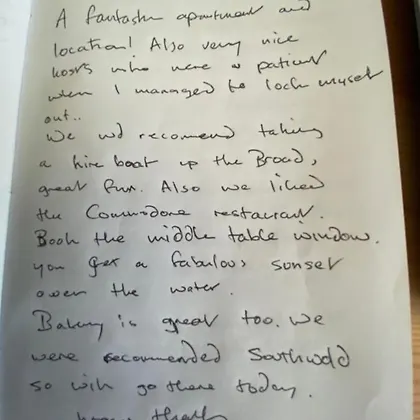 A fantastic apartment and
location! Also very nice
hosts who were so patient
when I managed to lock myself
out..
We wd recomend taking
a hire boat up the Broad,
great fun. Also we liked
the Commodore restaurant.
Book the middle table window.
you get a fabulous sunset
over the water.
Bakery is great too. We
were recommended Southwold
so will go there today.